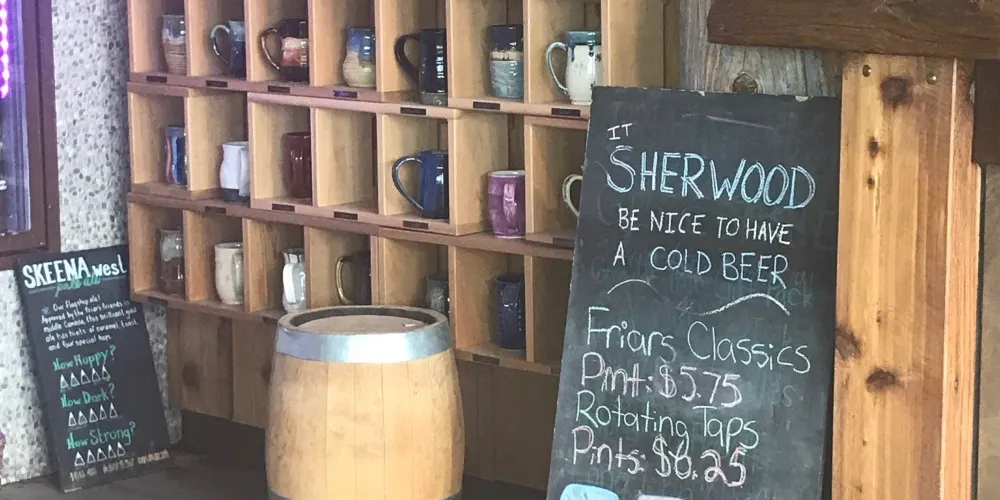 SKEENA west
pale ale
Our flagship ale!
Approved by the friar's friends in
middle Canada, this brilliant gold
ale has hints of caramel, toast
and four special hops.
How Hoppy?
How Dark?
How Strong?
IT
SHERWOOD
BE NICE TO HAVE
A COLD BEER
Friars Classics
Pint: $5.75
Rotating Taps
Pints: $6.25